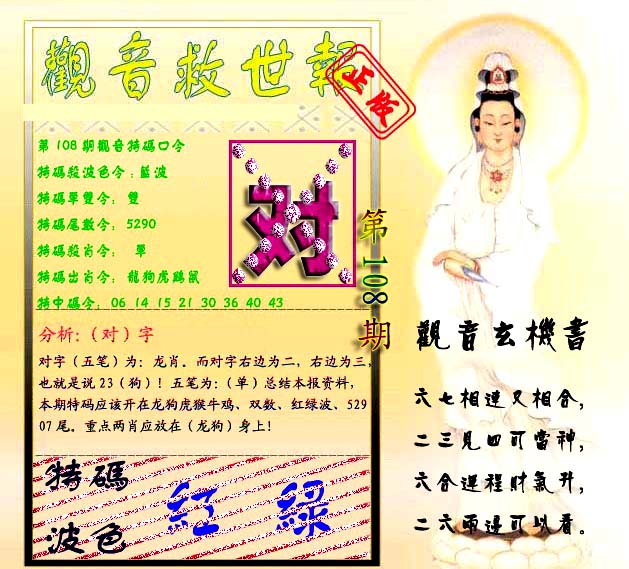 觀音救世報
正版
第108期觀音特碼口令
特碼殺波色令：藍波
特碼單雙令： 雙
特碼尾數令： 5290
特碼殺肖令： 單
特碼出肖令： 龍狗虎鷄鼠
特中碼令： 06 14 15 21 30 36 40 43
对
第108期
分析：（对）字
对字（五笔）为：龙肖。而对字右边为二，右边为三，
也就是说23（狗）！五笔为：（单）总结本报资料，
本期特码应该开在龙狗虎猴牛鸡、双数、红绿波、529
07尾。重点两肖应放在（龙狗）身上！
特碼
波色
紅 綠
觀音玄機書
六七相連又相合，
二三見四可當神，
六合運程財氣升，
二六兩邊可以看。